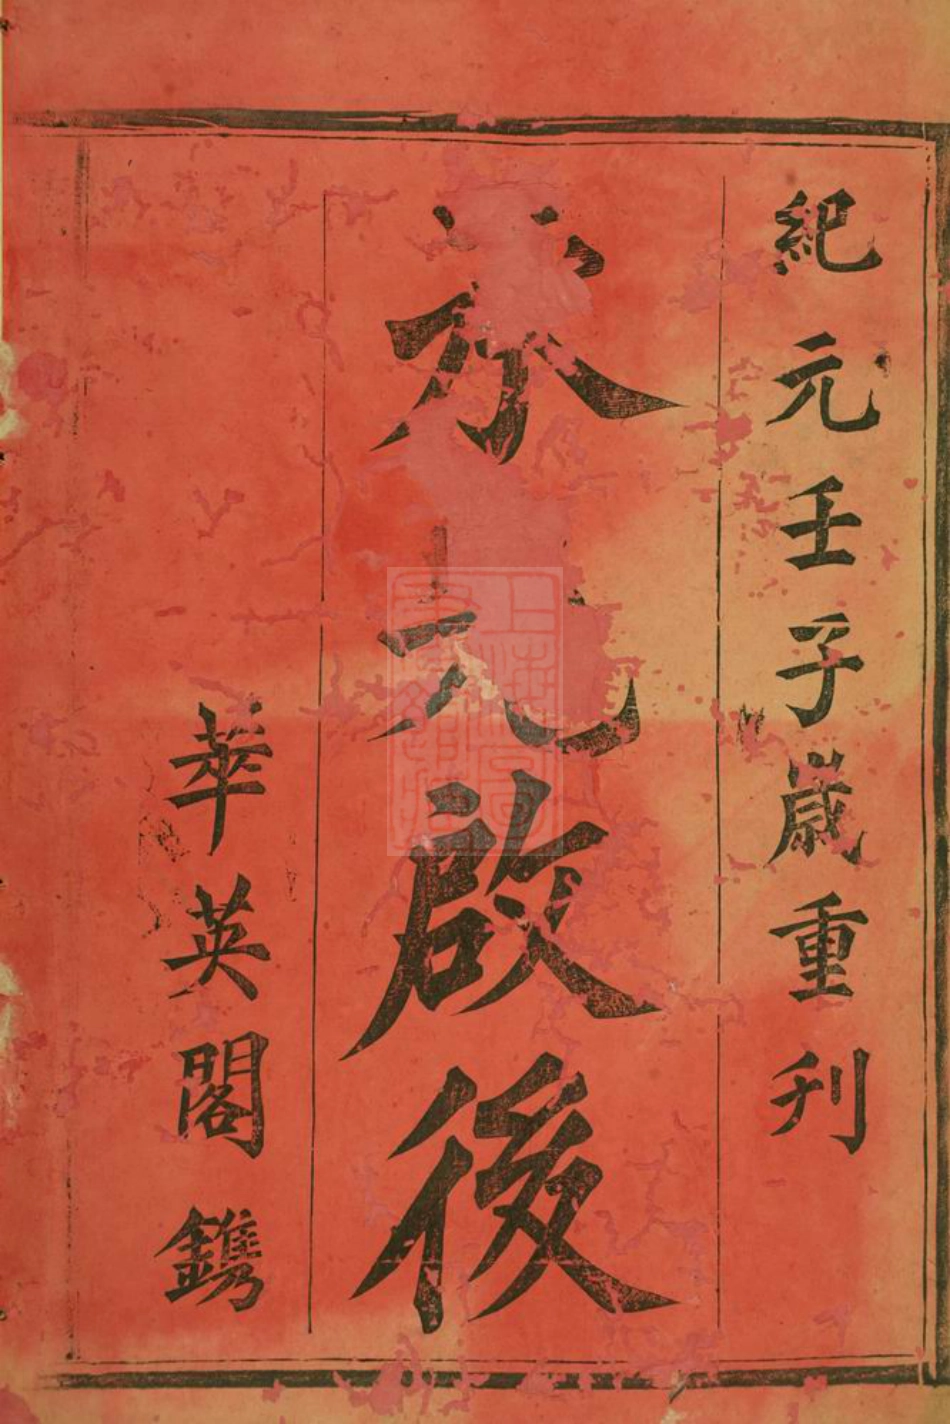 紀元壬子歲重刊
承先啟後
華英閣鐫